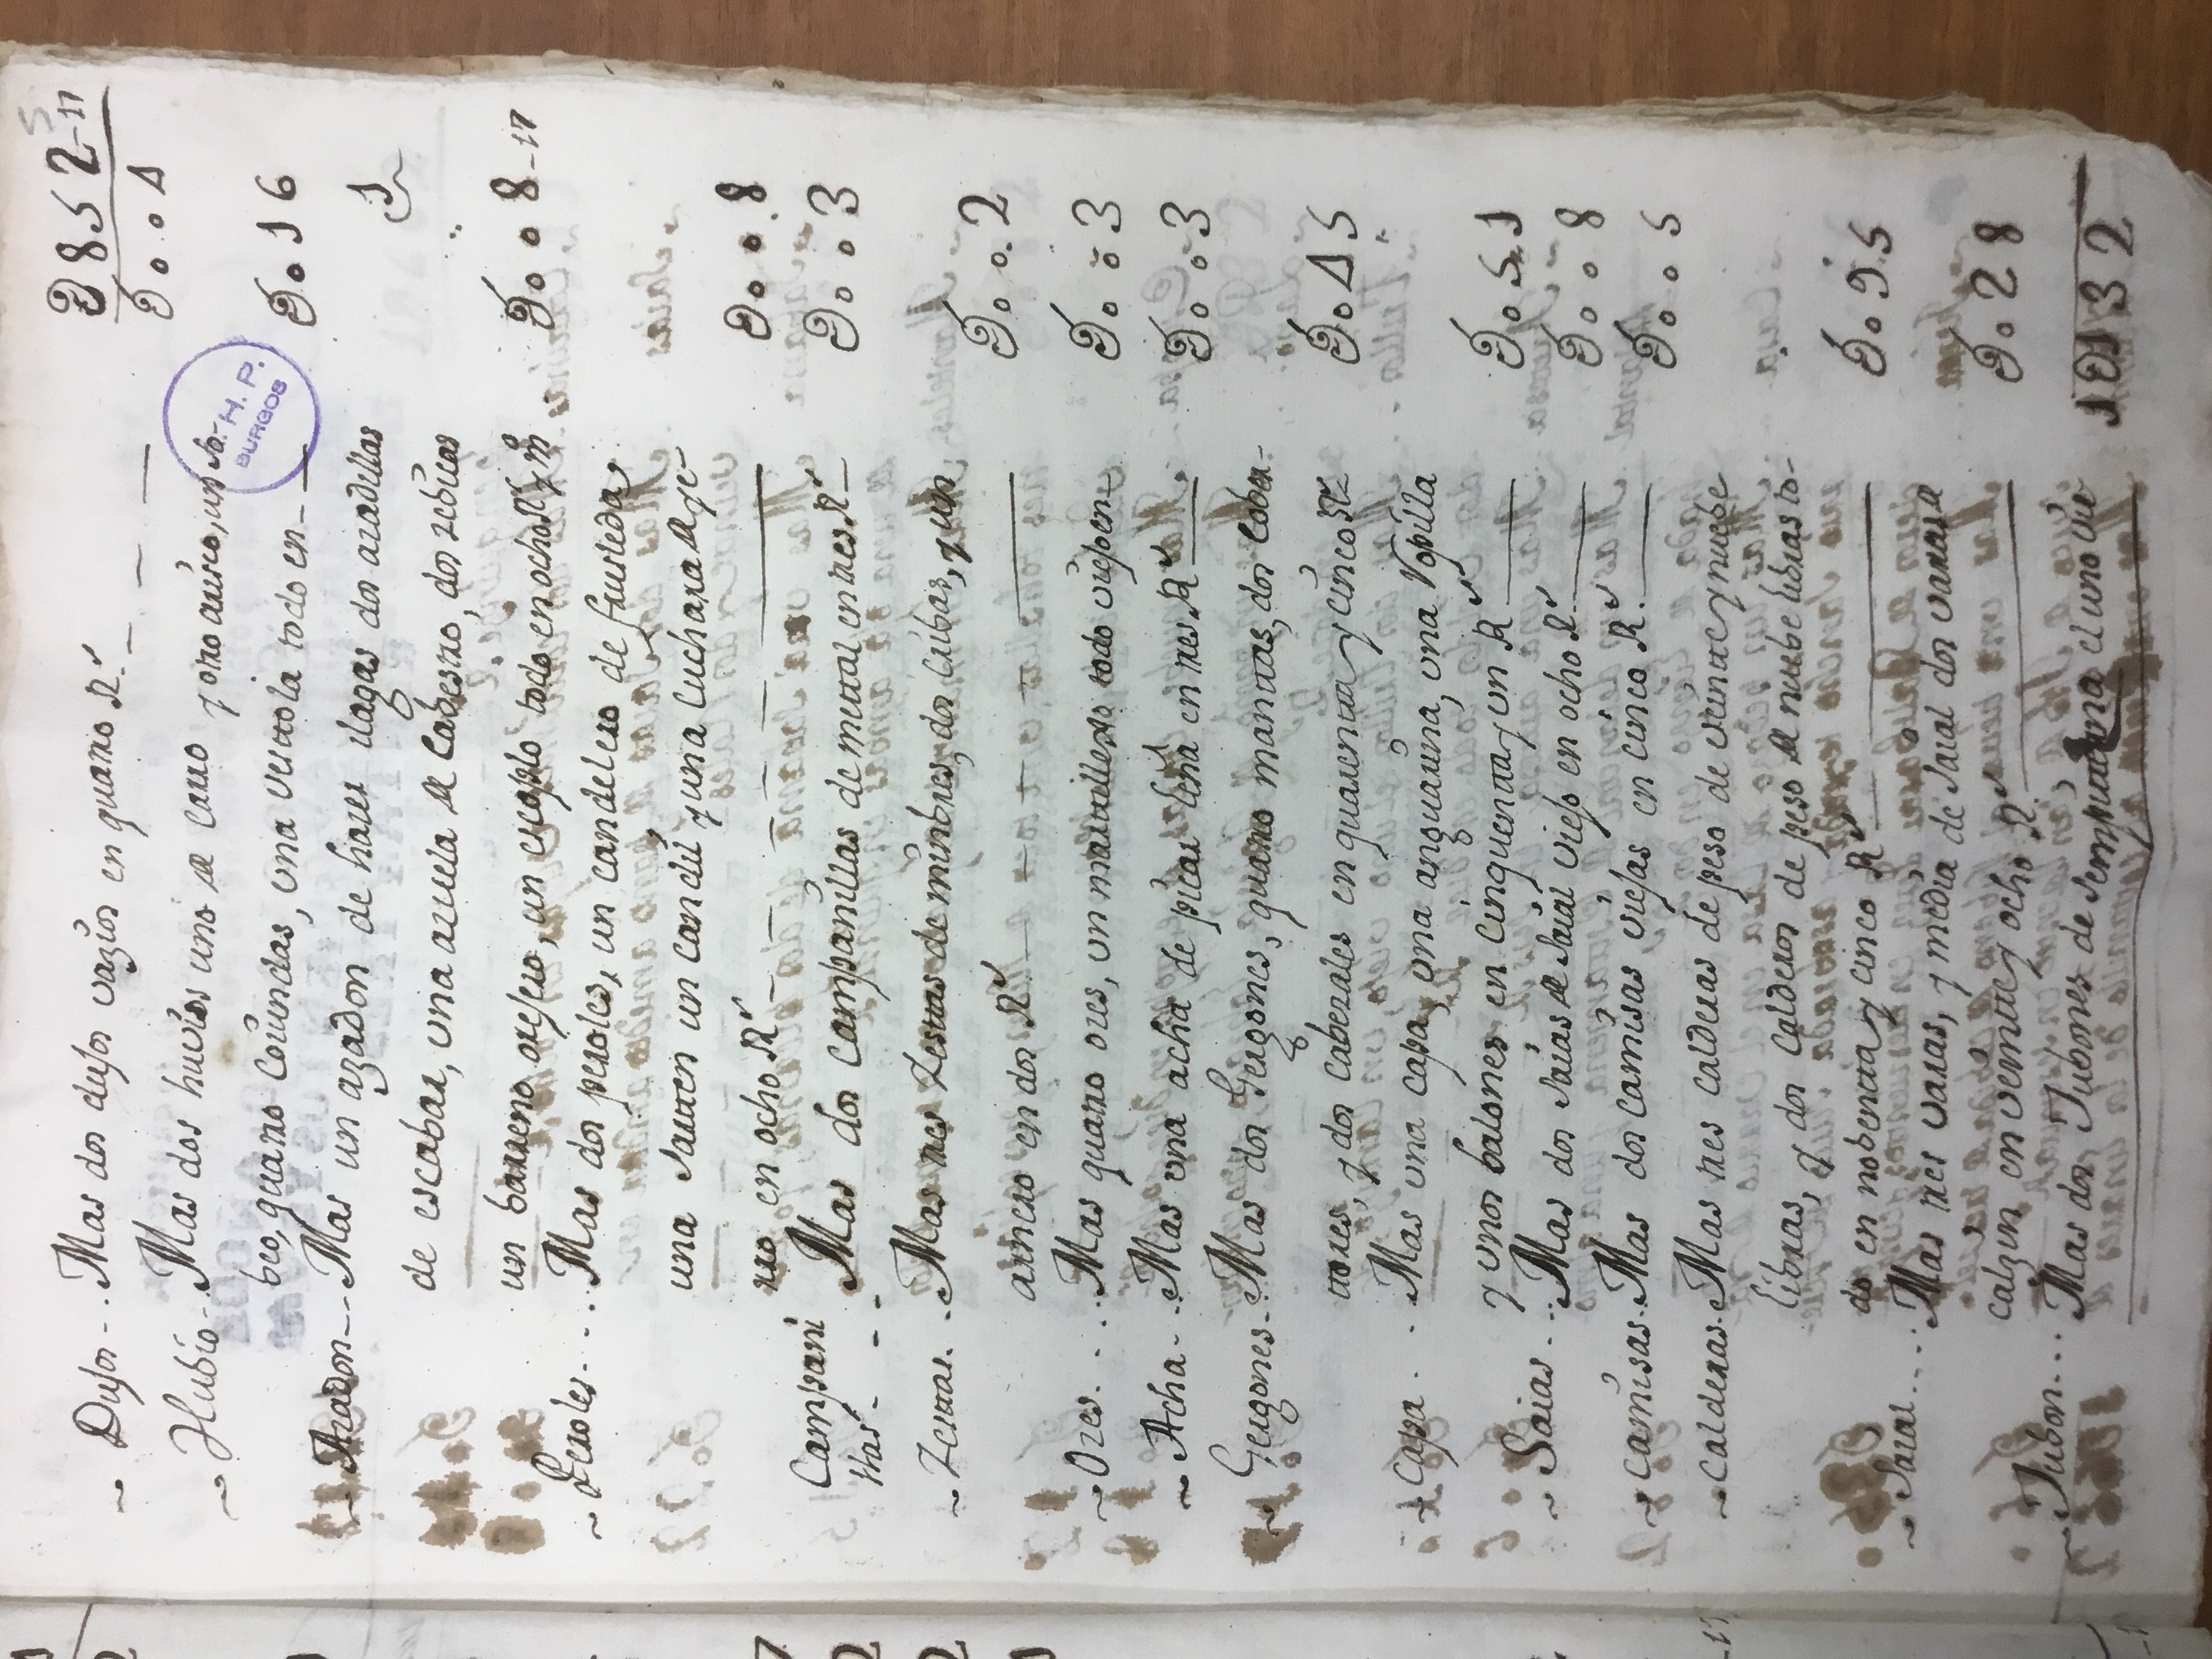 D852-17
~ Dujos - - Mas dos dujos vazios en quatro R.s D.004
~ Hubio - Mas dos hubios uno de carro y otro aurio, un
beo, quatro coiundas, una bertola todo en D.016
A.H.P.
BURGOS
~ Azadon - - Mas un azadon de hacer llagas dos azadillas
de escabar, una azuela de Cabestro, dos
un barreno biejo, un escoplo todo en ocho Rs y mo D.008-17
~ Peroles - - - Mas dos peroles, un candelero de
una Sarten un candil, y una Cuchara de ye-
rro en ocho Rs D.008
Campani
llas - - Mas dos Campanillas de mettal en tres Rs D.003
~ Zestas - - Mas tres Zestas de mimbres, dos cubas, y un
en dos Rs D.002
~ Ozes - - - Mas quatro ozes, un todo viejo en D.003
~ Acha - - Mas una acha de picar leña en tres Rs D.003
~ Gergones - Mas dos Gergones, quatro mantas, dos cober-
tores, y dos cabezales en quarenta y cinco Rs D.045
~ Capa - - Mas una capa, una anguarina, una Ropilla
y unos balones en cinquenta y un Rs D.051
~ Saias - - - Mas dos Saias de Saial viejo en ocho Rs D.008
~ Camisas - - Mas dos camisas viejas en cinco Rs D.005
~ Calderas - Mas tres calderas de peso de veinte y nuebe
libras, y dos Calderos de peso de nuebe libras to-
do en nobenta y cinco Rs D.095
~ Saial - - - Mas tres varas, y media de Saial dos varas de
calzin en veinte y ocho Rs D.028
~ Jubon - - - Mas dos Jubones de Sempiterna el uno vie
1D132